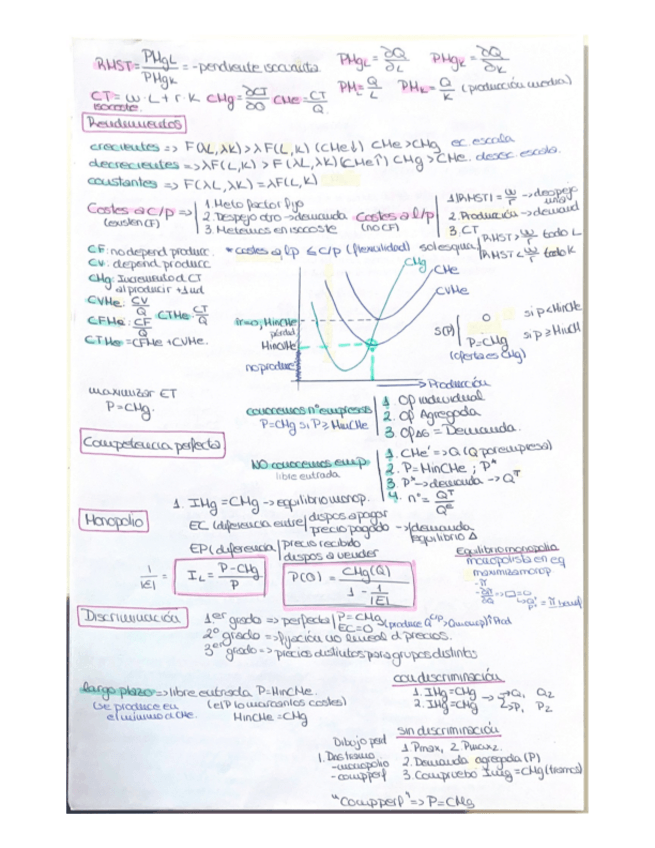 RMST = PMgL / PMgK = -pendiente isocuanta PMgL = ∂Q/∂L PMgK = ∂Q/∂K
CT = w·L + r·K CMg = ∂CT/∂Q CMe = CT/Q PML = Q/L PMK = Q/K (producción media)
isocoste
Rendimientos
crecientes => F(λL, λK) > λF(L, K) (CMe↓) CMe > CMg ec. escala
decrecientes => λF(L, K) > F(λL, λK) (CMe↑) CMg > CMe. desec. escala.
constantes => F(λL, λK) = λF(L, K)
Costes a c/p => (existen CF)
1. Meto factor fijo
2. Despejo otro → demanda
3. Metemos en isocoste
Costes a l/p (no CF)
1. |RMST| = w/r → despejo una
2. Producción → demand
3. CT
|RMST| > w/r todo L
|RMST| < w/r todo K
* costes a lp ≤ c/p (flexibilidad)
CF: no depend producc.
CV: depend producc
CMg: Incremento d CT
al producir +1 ud
CVMe: CV/Q
CFMe: CF/Q CTMe: CT/Q
CTMe = CFMe + CVMe.
CMg
CMe
CVMe
π=0; MinCMe
MinCVMe
no produce
→ Producción
S(P) 0 si p < MinCMe
P=CMg si p ≥ MinCM
(oferta es CMg)
maximizar
P = CMg.
Competencia perfecta
conocemos nº empresas
P=CMg si P ≥ MinCMe
1. Of individual
2. Of Agregada
3. Of AG = Demanda.
NO conocemos emp
libre entrada
1. CMe' => Q (Q por empresa)
2. P = MinCMe ; P*
3. P* → demanda → Q^T
4. nº = Q^T / Q^E
Monopolio
1. IMg = CMg → equilibrio monop.
EC (diferencia entre | dispos a pagar
precio pagado → demanda equilibrio Δ
EP (diferencia | precio recibido
dispos a vender
1/|E| = IL = P - CMg / P
P(Q) = CMg(Q) / 1 - 1/|E|
Equilibrio monopolio
monopolista en eq
maximiza monop
Discriminación
1er grado => perfecta | P = CMg
EC = 0
2º grado => fijación no lineal d precios.
3er grado => precios distintos para grupos distintos
largo plazo => libre entrada P = MinCMe.
Se produce en
el mínimo d CMe.
(el P lo marcan los costes)
MinCMe = CMg
con discriminación
1. IMg = CMg
2. IMg = CMg → Q1, Q2
→ P1 P2
sin discriminación
Dibujo perf
1. Dos tramo
- monopolio
- comp perf
1. Pmax, 2. Pmax2.
2. Demanda agregada (P)
3. Compruebo IMg = CMg (tramos)
"Comp perf" => P = CMg